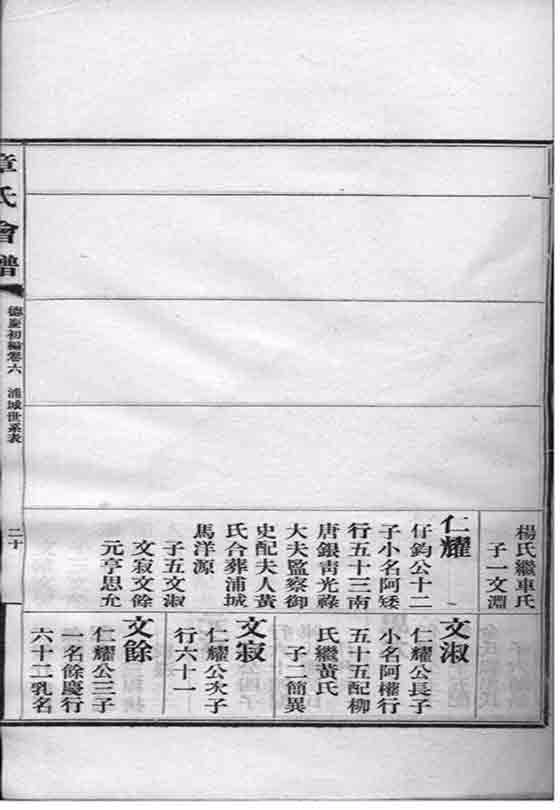 楊氏繼車氏
子一文淵
仁耀
仔鈞公十二
子小名阿矮
行五十三南
唐銀青光祿
大夫監察御
史配夫人黃
氏合葬浦城
馬洋源
子五文淑
文寂文餘
元亨思允
文淑
仁耀公長子
小名阿權行
五十五配柳
氏繼黃氏
子二簡異
文寂
仁耀公次子
行六十一
文餘
仁耀公三子
一名餘慶行
六十二乳名
章氏會譜
德慶初編卷六
浦城世系表
二十